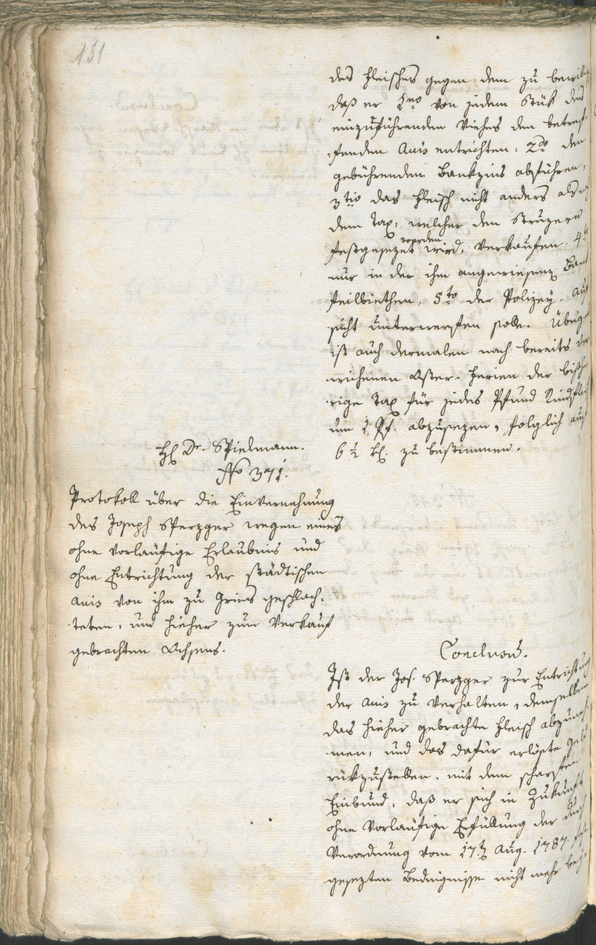 151
des Fleisches gegen dem zu
daß er 1mo von jedem Stük des
einzuführenden Viehes den betref
fenden Auis entrichten, 2do den
gebührenden Bankzins abführen,
3tio das Fleisch nicht anders als
dem Tax, welcher den
festgesezet worden wird, verkaufen. 4to
nur in der ihm angewiesenen Bank
feilbiethen, 5to der Polizey-Auf
sicht unterwerffen solle. Übrigens
ist auch dermalen nach bereits
Oster-Ferien der bishe
rige Tax für jedes Pfund Rindfleisch
um 1 Pf. abzusezen, folglich auf
6 ½ kr. zu bestimmen.
H Dr. Spielmann.
No 371.
Protokoll über die Einvernehmung
des Joseph Sperzger wegen eines
ohne vorläufige Erlaubnis und
ohne Entrichtung der städtischen
Auis von ihm zu Gries geschlach
teten, und hieher zum Verkauf
gebrachten Ochsens.
Conclusum.
Ist der Jos. Sperzger zur Entrichtung
der Auis zu verhalten, demselben
das hieher gebrachte Fleisch abzuneh
men, und das dafür erlöste Geld
rükzustellen, mit dem scharfen
Einbund, daß er sich in Zukunft
ohne vorläufige Erfüllung der durch
Verordnung vom 17ten Aug. 1787.
gesezten Bedingnisse nicht mehr